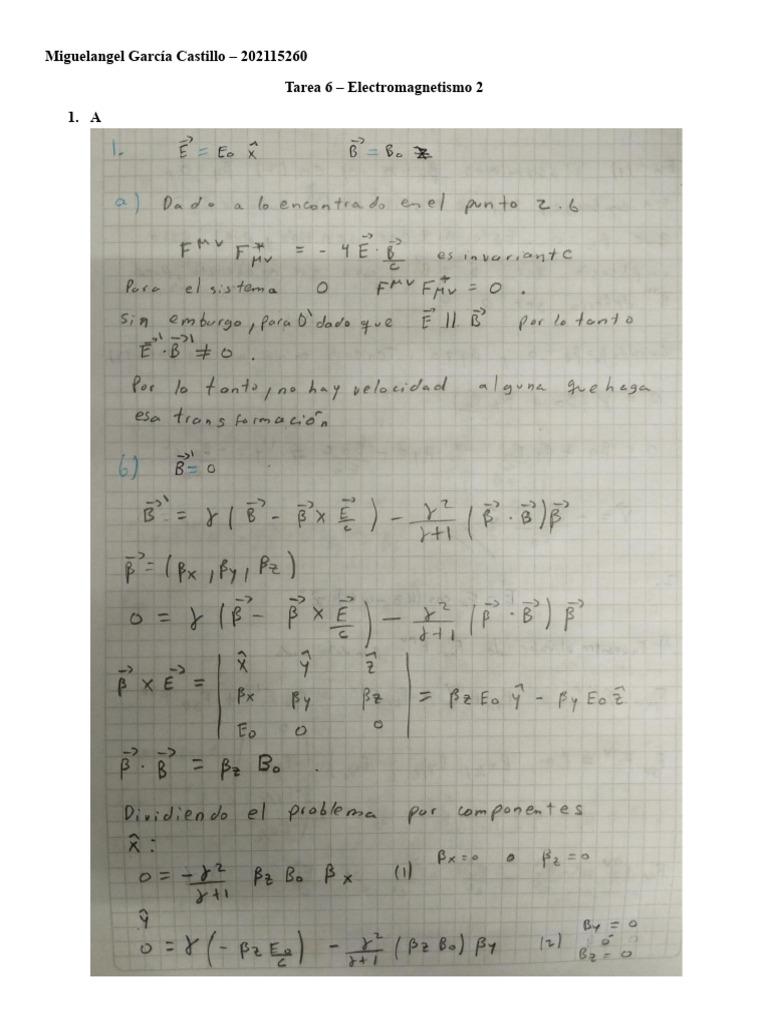 Miguelangel García Castillo – 202115260
Tarea 6 – Electromagnetismo 2
1. A
1. E⃗ = E₀ x̂    B⃗ = B₀ ẑ
a) Dado a lo encontrado en el punto 2.6
F^{μν} F*_{μν} = - 4 E⃗ · B⃗/c es invariante
Para el sistema O F^{μν} F*_{μν} = 0 .
Sin emburgo, para O' dado que E⃗ || B⃗ por lo tanto
E⃗' · B⃗' ≠ 0 .
Por lo tanto, no hay velocidad alguna que haga
esa transformación
b) B⃗' = 0
B⃗' = γ ( B⃗ - β⃗ x E⃗/c ) - γ²/(γ+1) ( β⃗ · B⃗ ) β⃗
β⃗ = (βx , βy , βz)
0 = γ ( B⃗ - β⃗ x E⃗/c ) - γ²/(γ+1) ( β⃗ · B⃗ ) β⃗
β⃗ x E⃗ = | x̂ ŷ ẑ |
| βx βy βz | = βz E₀ ŷ - βy E₀ ẑ
| E₀ 0 0 |
β⃗ · B⃗ = βz B₀ .
Dividiendo el problema por componentes
x̂ :
0 = - γ²/(γ+1) βz B₀ βx (1) βx = 0 o βz = 0
ŷ
0 = γ ( - βz E₀/c ) - γ²/(γ+1) ( βz B₀ ) βy (2) By = 0
o
Bz = 0